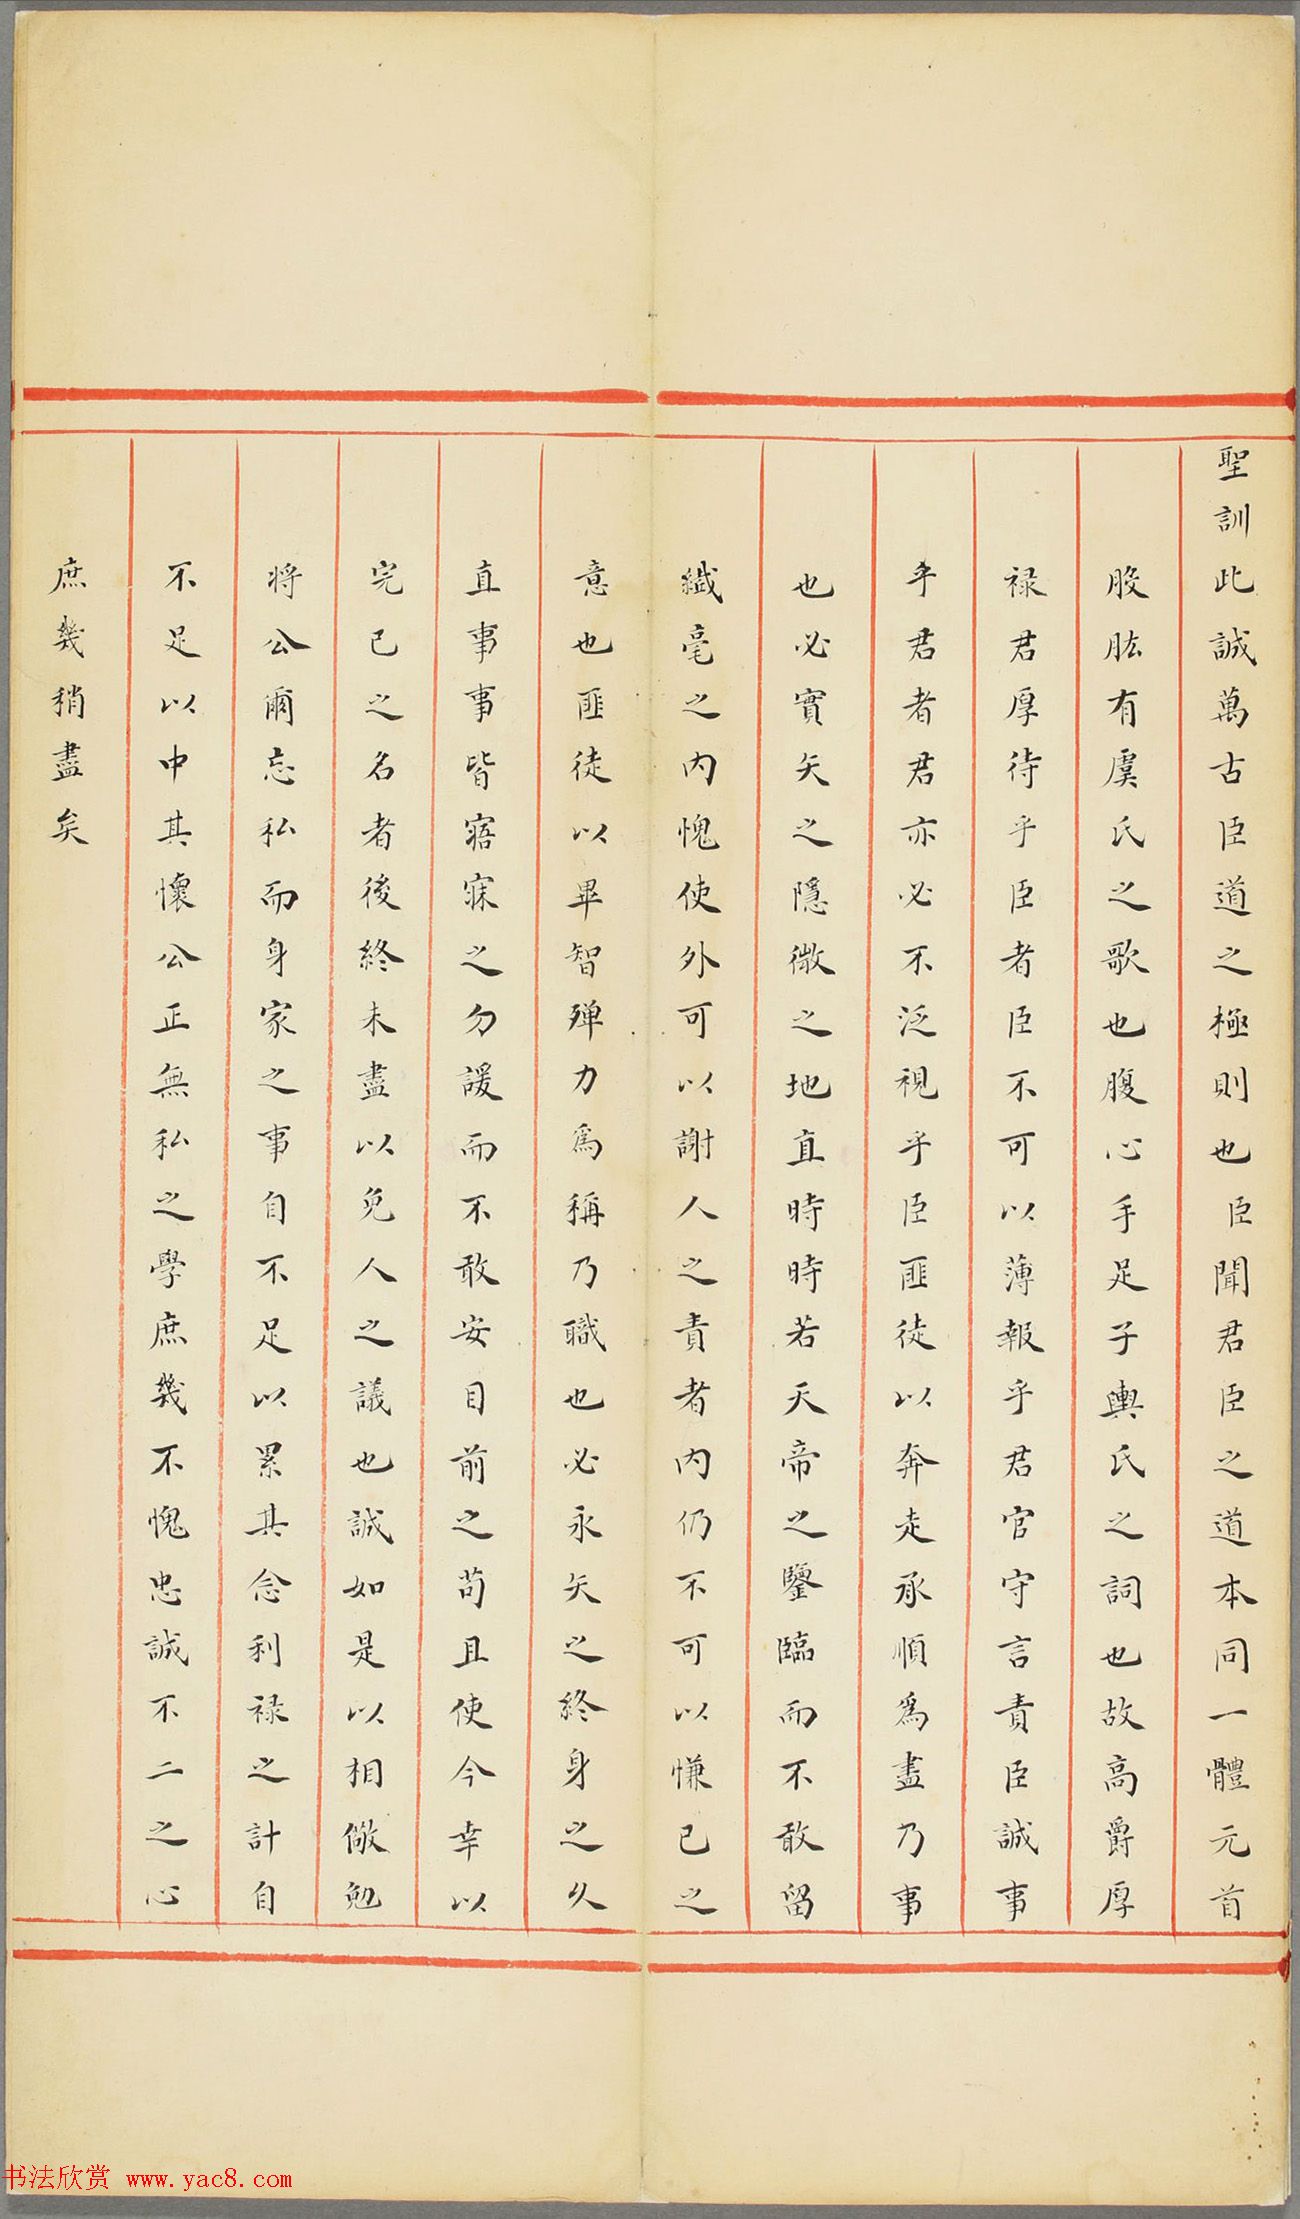 聖訓此誠萬古臣道之極則也臣聞君臣之道本同一體元首
股肱有虞氏之歌也腹心手足子輿氏之詞也故高爵厚
祿君厚待乎臣者臣不可以薄報乎君官守言責臣誠事
乎君者君亦必不泛視乎臣匪徒以奔走承順為盡乃事
也必實矢之隱微之地直時時若天帝之鑒臨而不敢留
纖毫之內愧使外可以謝人之責者內仍不可以慊己之
意也匪徒以畢智殫力為稱乃職也必永矢之終身之久
直事事皆寤寐之勿諼而不敢安目前之苟且使今幸以
完己之名者後終未盡以免人之議也誠如是以相儆勉
將公爾忘私而身家之事自不足以累其念利祿之計自
不足以中其懷公正無私之學庶幾不愧忠誠不二之心
庶幾稍盡矣
书法欣赏 www.yac8.com